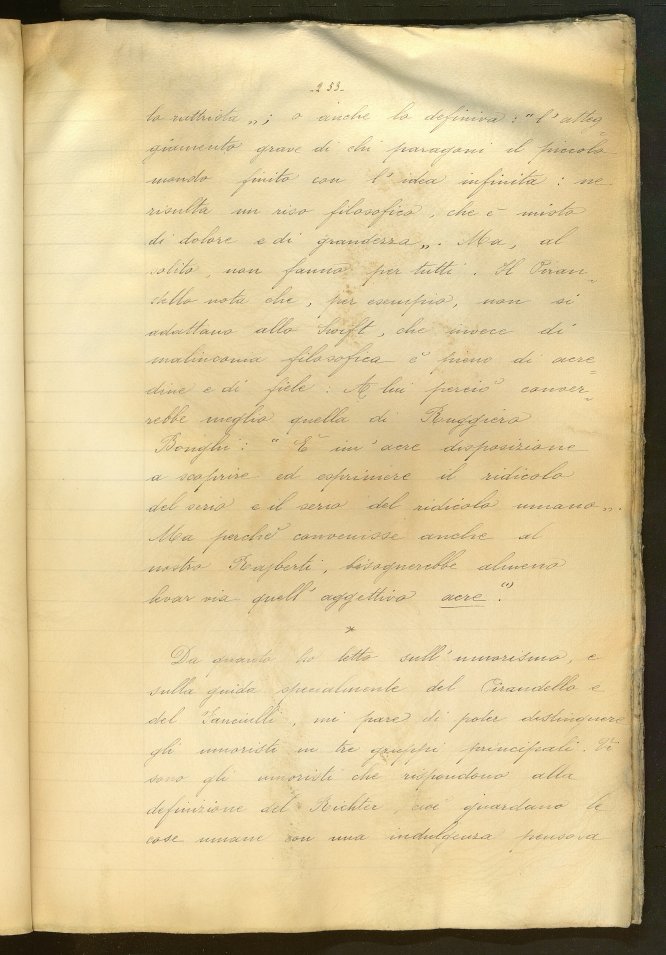 -233-
la vittrista „; o anche lo definiva: "l'atteg-
giamento grave di chi paragoni il piccolo
mondo finito con l'idea infinita: ne
risulta un riso filosofico, che è misto
di dolore e di grandezza„. Ma, al
solito, non fanno per tutti. Il Piran-
dello nota che, per esempio, non si
adattano allo Swift, che invece di
malinconia filosofica è pieno di acre-
dine e di fiele: A lui perciò conver-
rebbe meglio quella di Ruggiero
Bonghi: "È un'acre disposizione
a scoprire ed esprimere il ridicolo
del serio e il serio del ridicolo umano„.
Ma perchè convenisse anche al
nostro Rajberti, bisognerebbe almeno
levar via quell'aggettivo acre."
*
Da quanto ho letto sull'umorismo, e
sulla guida specialmente del Pirandello e
del Fanciulli, mi pare di poter distinguere
gli umoristi in tre gruppi principali. Vi
sono gli umoristi che rispondono alla
definizione del Richter, cioè guardano le
cose umane con una indulgenza pensosa